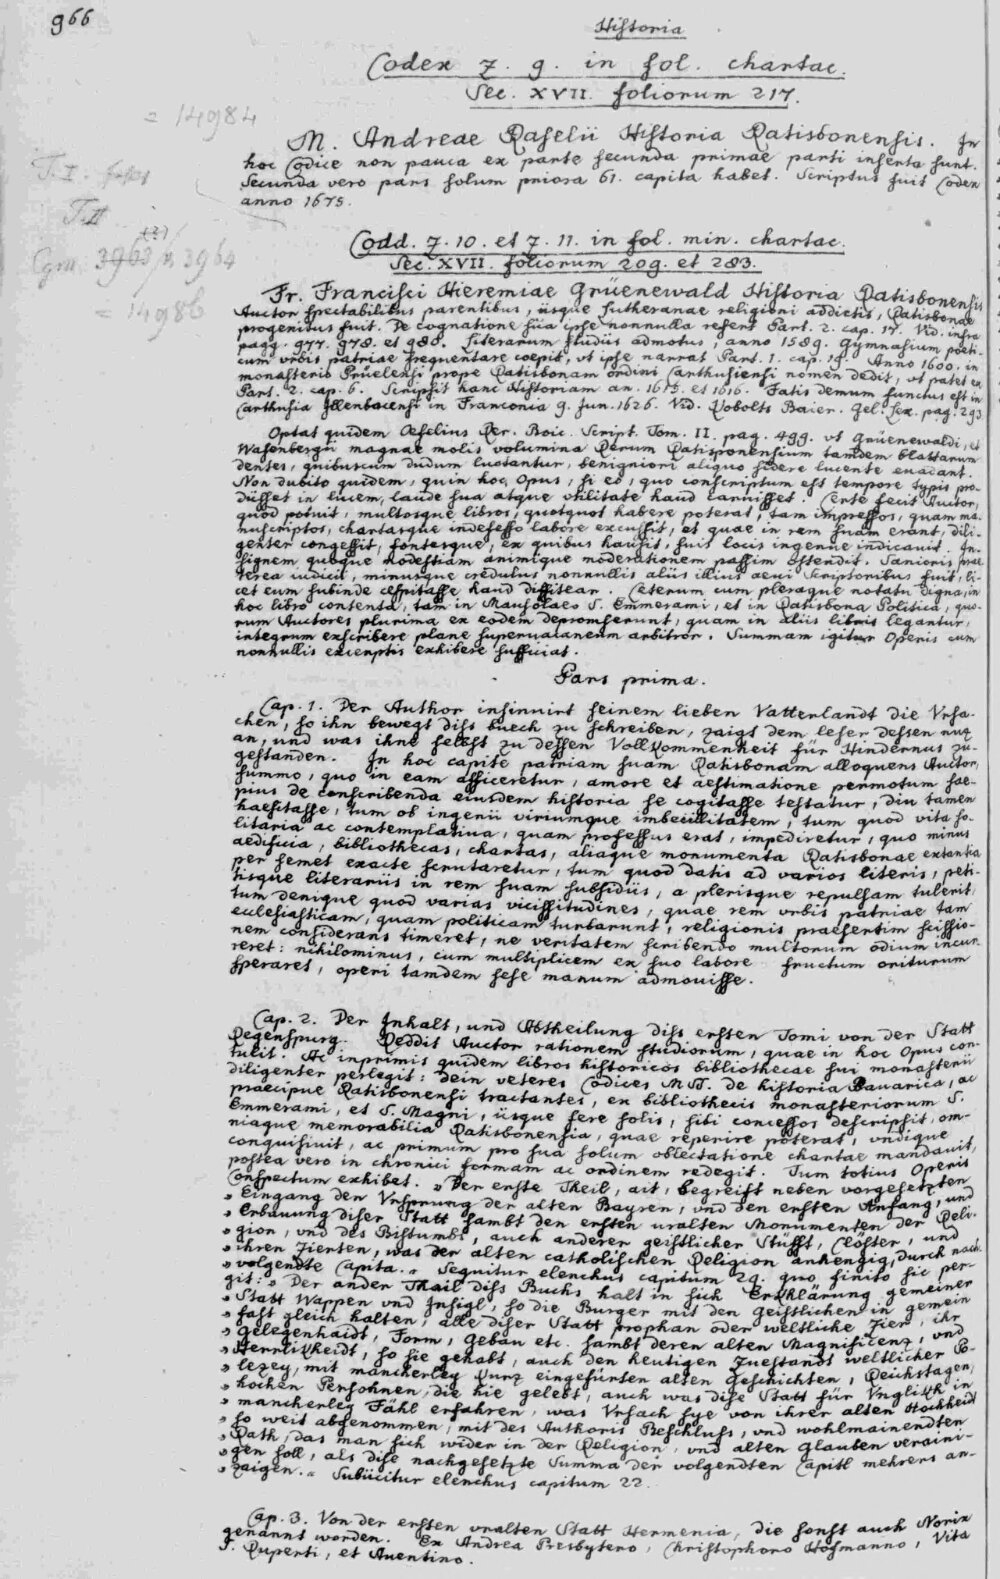 966
Historia
Codex 7. 9. in fol. chartac.
Sec. XVII. foliorum 217.
= 14984
M. Andreae Raselii Historia Ratisbonensis. In
hoc Codice non pauca ex parte secunda primae parti inserta sunt.
Secunda vero pars solum priora 61. capita habet. Scriptus fuit Codex
anno 1675.
T. I.
T. II
(2)
Cgm 3963 / 3964
= 14986
Codd. 7. 10. et 7. 11. in fol. min. chartac.
Sec. XVII. foliorum 209. et 283.
Fr. Francisci Hieremiae Grüenewald Historia Ratisbonensis
Auctor spectabilibus parentibus, üsque Lutheranae religioni addictis, Ratisbonae
progenitus fuit. De cognatione süa ipse nonnulla refert Part. 2. cap. 17. Vid. infra
pagg. 977. 978. et 980. Literarum studiis admotus, anno 1589. Gymnasium poeti-
cum vrbis patriae frequentare coepit, vt ipse narrat Part. 1. cap. 19. Anno 1600. in
monasterio Prüelensi prope Ratisbonam ordini Carthusiensi nomen dedit, vt patet ex
Part. 2. cap. 6. Scripsit hanc Historiam an. 1615. et 1616. Fatis demum functus est in
Carthusia Illenbacensi in Franconia 9. Jun. 1626. Vid. Kobolts Baier. Gel. Lex. pag. 293
Optat quidem Oefelius Rer. Boic. Script. Tom. II. pag. 499. vt Grüenewaldi, et
Wasenbergii magnae molis volumina Rerum Ratisponensium tandem blattarum
dentes, quibuscum dudum luctantur, benigniori aliquo sidere lucente euadant.
Non dubito quidem, quin hoc Opus, si eo, quo conscriptum est tempore typis pro-
düsset in lucem, laude sua atque vtilitate haud caruisset. Certe fecit Auctor,
quod potuit, multosque libros, quotquot habere poterat, tam impressos, quam ma-
nuscriptos, chartasque indefesso labore excussit, et quae in rem suam erant, dili-
genter congessit, fontesque, ex quibus hausit, suis locis ingenue indicauit. In-
signem quoque modestiam animique moderationem passim ostendit. Sanioris prae-
terea iudicii, minusque credulus nonnullis aliis illius aeui Scriptoribus fuit, li-
cet eum subinde cespitasse haud diffitear. Ceterum cum pleraque notatu digna, in
hoc libro contenta, tam in Mausolaeo S. Emmerami, et in Ratisbona Politica, quo-
rum Auctores plurima ex eodem depromserunt, quam in aliis libris legantur,
integrum exscribere plane superuacaneum arbitror. Summam igitur Operis cum
nonnullis excerptis exhibere sufficiat.
Pars prima.
Cap. 1. Der Author insinuirt seinem lieben Vatterlandt die Vrsa-
chen, so ihn bewegt diss buech zu schreiben, zaigt dem leser dessen nuz
an, und was ihne selbst zu dessen Vollkommenheit für Hindernus zu-
gestanden. In hoc capite patriam suam Ratisbonam alloquens Auctor,
summo, quo in eam afficeretur, amore et aestimatione permotum sae-
pius de conscribenda eiusdem historia se cogitasse testatur, diu tamen
haesitasse, tum ob ingenii viriumque imbecillitatem, tum quod vita so-
litaria ac contemplatiua, quam professus erat, impediretur, quo minus
aedificia, bibliothecas, chartas, aliaque monumenta Ratisbonae extantia
per semet exacte scrutaretur, tum quod datis ad varios literis, peti-
tisque literariis in rem suam subsidiis, a plerisque repulsam tulerit,
tum denique quod varias vicissitudines, quae rem vrbis patriae tam
ecclesiasticam, quam politicam turbarunt, religionis praesertim scissio-
nem considerans timeret, ne veritatem scribendo multorum odium incur-
reret: nihilominus, cum multiplicem ex suo labore fructum oriturum
sperares, operi tamdem sese manum admouisse.
Cap. 2. Der Inhalt, und Abtheilung diss ersten Tomi von der Statt
Regenspurg. Reddit Auctor rationem studiorum, quae in hoc Opus con-
tulit. Ac inprimis quidem libros historicos bibliothecae sui monasterii
diligenter perlegit: dein veteres Codices MSS. de historia Bauarica, ac
praecipue Ratisbonensi tractantes, ex bibliothecis monasteriorum S.
Emmerami, et S. Magni, üsque fere solis, sibi concessos descripsit, om-
niaque memorabilia Ratisbonensia, quae reperire poterat, vndique
conquisiuit, ac primum pro sua solum oblectatione chartae mandauit,
postea vero in chronici formam ac ordinem redegit. Tum totius Operis
Conspectum exhibet. „Der erste Theil, ait, begreift neben vorgesetzten
„Eingang den Vrsprung der alten Bayren, vnd den ersten Anfang, und
„Erbauung diser Statt sambt den ersten uralten Monumenten der Reli-
„gion, vnd des Bistumbs, auch anderer geistlicher Stüfft, Clöster, und
„ihren Zierten, was der alten catholischen Religion anhengig, durch nach-
„volgendte Capita.„ Sequitur elenchus capitum 29. quo finito sic per-
git: „Der ander Thail diss Buchs halt in sich Erkhlärung gemeiner
„Statt Wappen vnd Insigl, so die Burger mit den Geistlichen in gemein
„fast gleich halten, alle diser Statt prophan oder weltliche Zier, ihr
„Gelegenhaidt, Form, Gebäu etc. sambt deren alten Magnificenz, und
„Herrlikheidt, so sie gehabt, auch den heutigen Zuestandt weltlicher Po-
„lezey, mit mancherley kurz eingefürten alten Geschichten, Reichstagen,
„hochen Persohnen, die hie gelebt, auch was dise Statt für Vnglikh in
„mancherley Fähl erfahren, was Vrsach sye von ihrer alten Hochheid
„so weit abgenommen, mit des Authoris Beschluss, und wohlmainendten
„Rath, das man sich wider in der Religion, vnd alten Glauben veraini-
„gen soll, als dise nachgesetzte Summa der volgendten Capitl mehrers an-
„zaigen.„ Subiicitur elenchus capitum 22.
Cap. 3. Von der ersten vralten Statt Hermenia, die sonst auch Norix
genannt worden. Ex Andrea Presbytero, Christophoro Hofmanno, Vita
S. Ruperti, et Auentino.